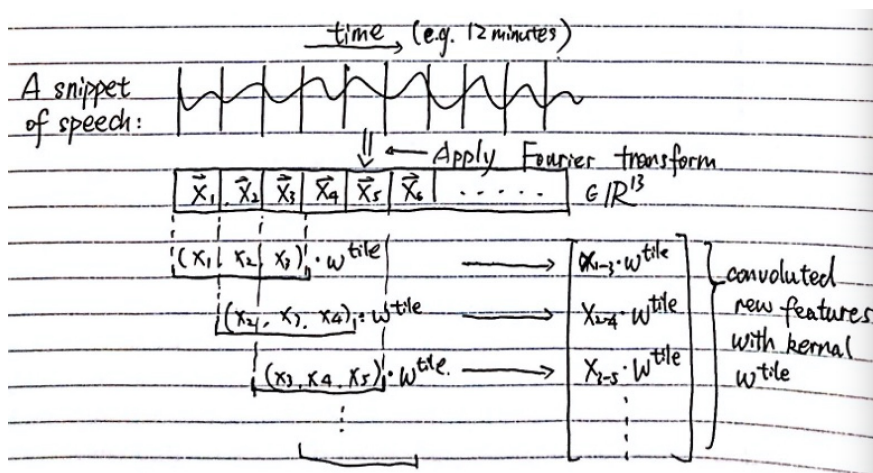 time (e.g. 12 minutes)
A snippet
of speech:
Apply Fourier transform
x⃗₁ x⃗₂ x⃗₃ x⃗₄ x⃗₅ x⃗₆ ...... ∈ ℝ¹³
(x₁ x₂ x₃) · w^tile x₁₋₃ · w^tile
(x₂, x₃, x₄) · w^tile x₂₋₄ · w^tile
(x₃, x₄, x₅) · w^tile. x₃₋₅ · w^tile
convoluted
new features
with kernal
w^tile